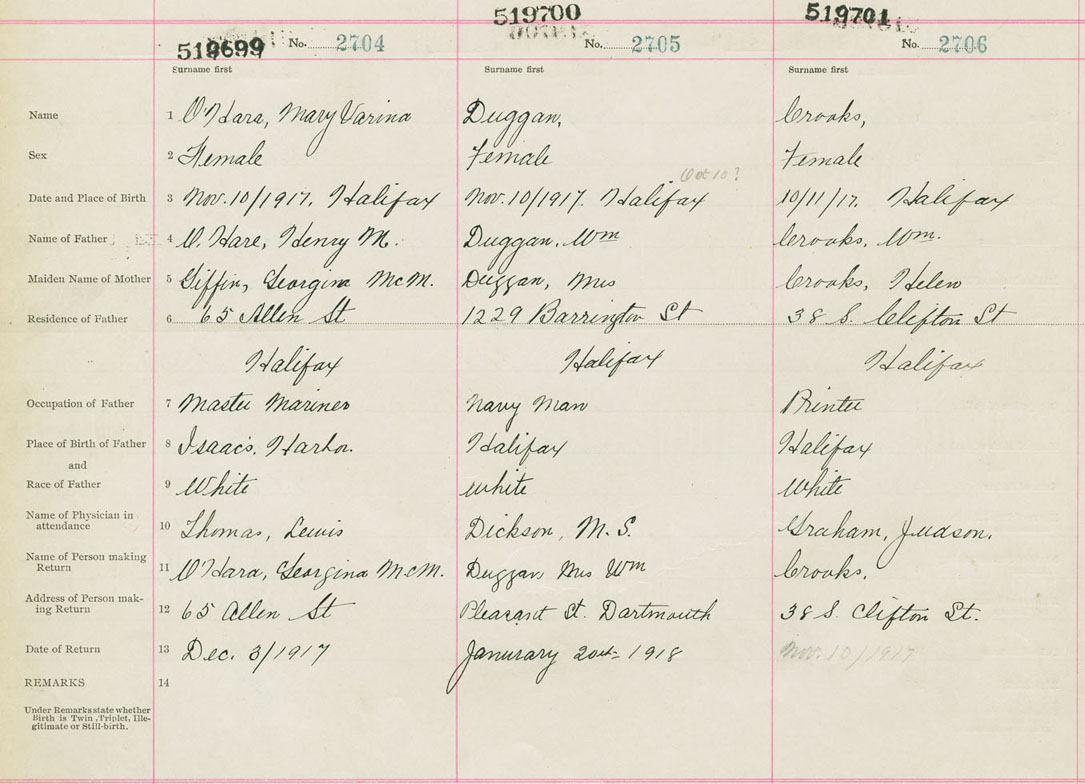 519700 519701
519699 No. 2704 No. 2705 No. 2706
Surname first Surname first Surname first
Name 1 O'Hara, Mary Varina Duggan, Crooks,
Sex 2 Female Female Female
Oct 10?
Date and Place of Birth 3 Nov. 10/1917. Halifax Nov. 10/1917. Halifax 10/11/17. Halifax
Name of Father 4 O. Hare, Henry M. Duggan, Wm Crooks, Wm.
Maiden Name of Mother 5 Giffin, Georgina McM. Duggan, Mrs Crooks, Helen
Residence of Father 6 65 Allen St 1229 Barrington St 38 S. Clifton St
Halifax Halifax Halifax
Occupation of Father 7 Master Mariner Navy Man Printer
Place of Birth of Father 8 Isaac's. Harbor. Halifax Halifax
and
Race of Father 9 White White White
Name of Physician in
attendance 10 Thomas, Lewis Dickson, M. S. Graham, Judson.
Name of Person making
Return 11 O'Hara, Georgina McM. Duggan Mrs Wm Crooks.
Address of Person mak-
ing Return 12 65 Allen St Pleasant St. Dartmouth 38 S. Clifton St.
Date of Return 13 Dec. 3/1917 Janurary 20th 1918 Nov. 10/1917
REMARKS 14
Under Remarks state whether
Birth is Twin, Triplet, Ille-
gitimate or Still-birth.